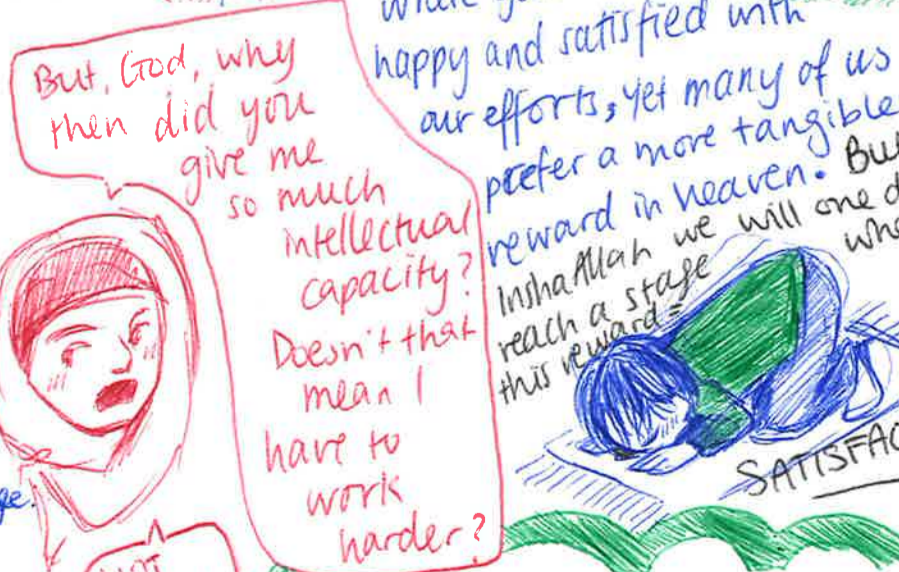 But, God, why
then did you
give me
so much
intellectual
capacity?
Doesn't that
mean I
have to
work
harder?
happy and satisfied with
our efforts, yet many of us
prefer a more tangible
reward in heaven. Bu
InshaAllah we will one d
reach a stage whe
this reward =
SATISFAC
ge.
NOT